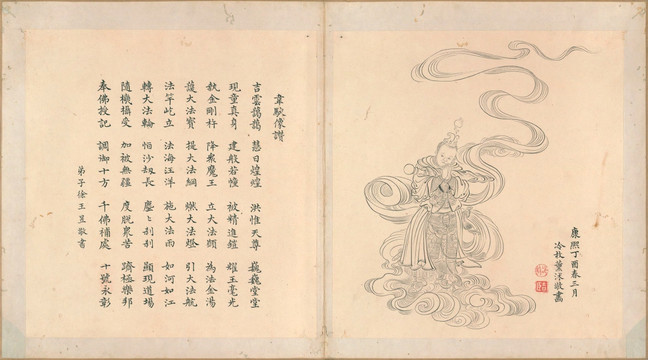 康熙丁酉春三月
冷枚薰沐敬畫
韋馱像讚
吉雲靄靄 慧日煌煌 洪惟天尊 巍巍堂堂
現童真身 建般若幢 被精進鎧 耀玉毫光
執金剛杵 降衆魔王 立大法願 為法金湯
護大法寶 提大法綱 燃大法燈 引大法航
法竿屹立 法海汪洋 施大法雨 如河如江
轉大法輪 恒沙劫長 塵〻刹刹 顯現道場
隨機攝受 加被無疆 度脫衆苦 躋極樂邦
奉佛授記 調御十方 千佛補處 十號永彰
弟子徐玉敬書